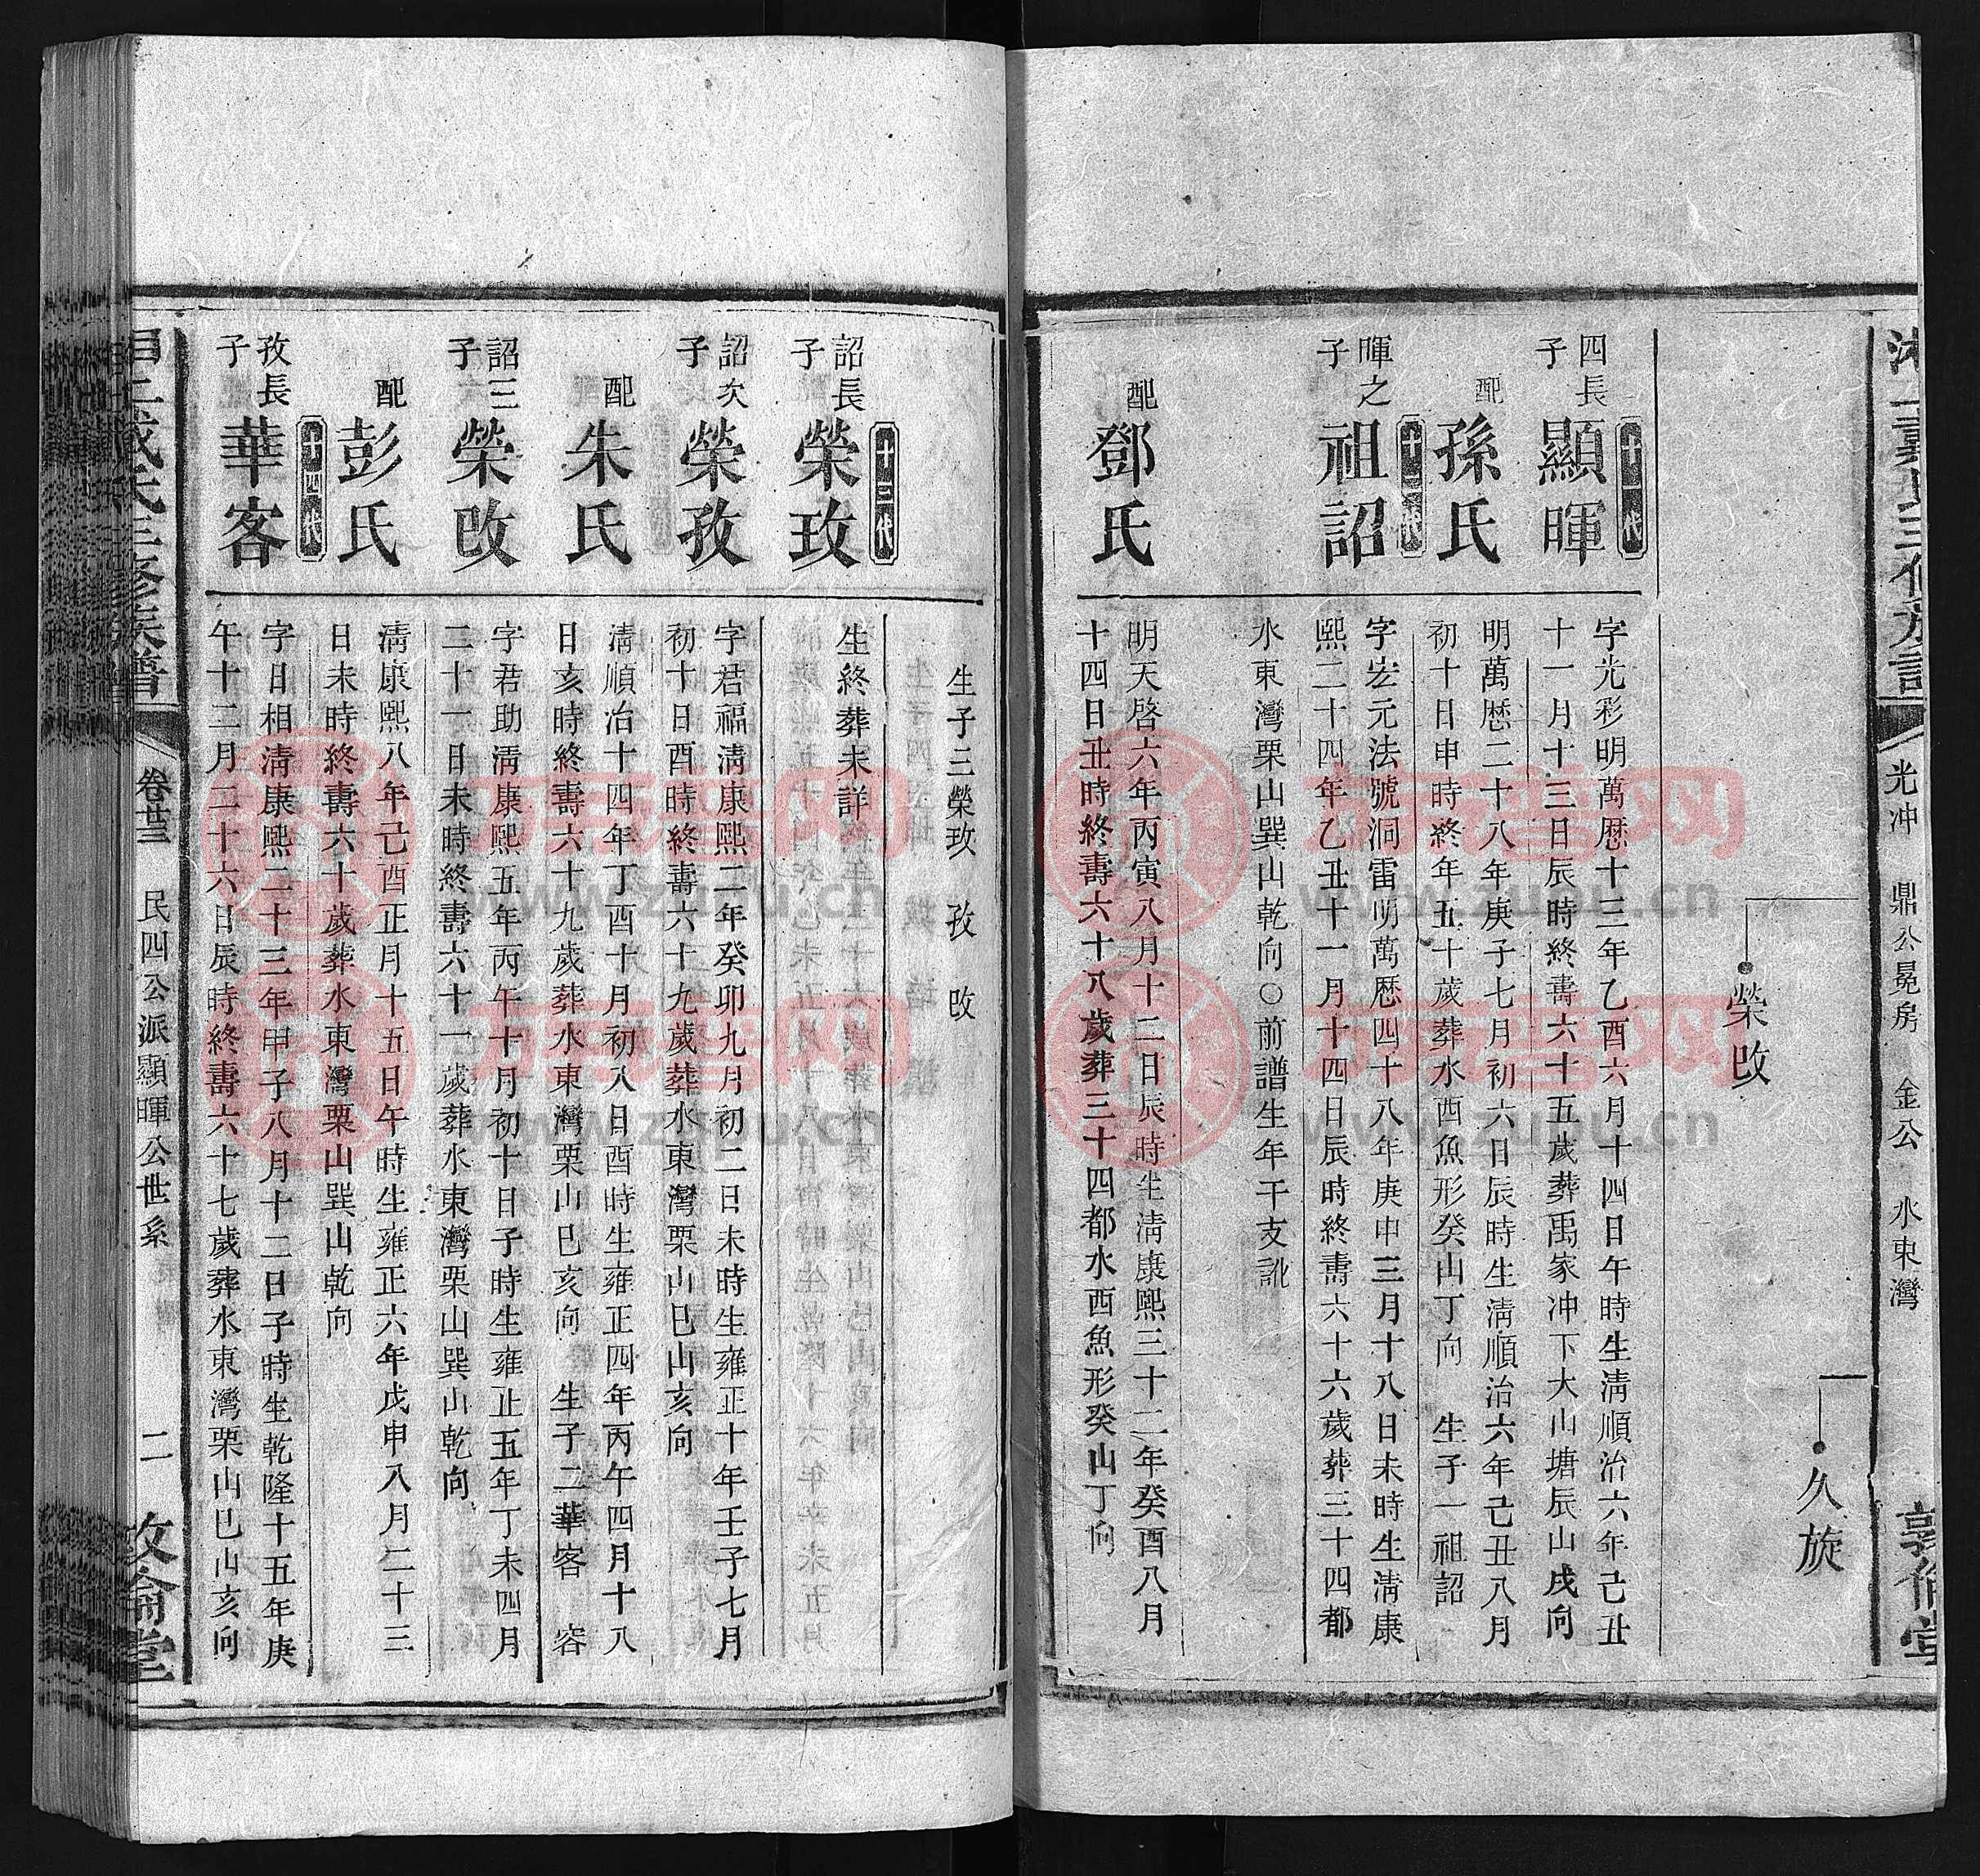 光冲　鼎公冕房　金公　水東灣
敦倫堂
久旋
榮改
十一代
四長子　顯暉
字光彩明萬曆十三年乙酉六月十四日午時生清順治六年己丑
十一月十三日辰時終壽六十五歲葬禹家冲下大山塘辰山戌向
配　孫氏
明萬曆二十八年庚子七月初六日辰時生清順治六年己丑八月
初十日申時終年五十歲葬水西魚形癸山丁向　生子一祖詔
十二代
暉之子　祖詔
字宏元法號洞雷明萬曆四十八年庚申三月十八日未時生清康
熙二十四年乙丑十一月十四日辰時終壽六十六歲葬三十四都
水東灣栗山巽山乾向○前譜生年干支訛
配　鄧氏
明天啓六年丙寅八月十二日辰時生清康熙三十二年癸酉八月
十四日丑時終壽六十八歲葬三十四都水西魚形癸山丁向
生子三榮玫　孜　改
十三代
詔長子　榮玫
生終葬未詳
詔次子　榮孜
字君福清康熙二年癸卯九月初二日未時生雍正十年壬子七月
初十日酉時終壽六十九歲葬水東灣栗山巳山亥向
配　朱氏
清順治十四年丁酉十月初八日酉時生雍正四年丙午四月十八
日亥時終壽六十九歲葬水東灣栗山巳亥向　生子二華客　容
詔三子　榮改
字君助清康熙五年丙午十月初十日子時生雍正五年丁未四月
二十一日未時終壽六十一歲葬水東灣栗山巽山乾向
配　彭氏
清康熙八年己酉正月十五日午時生雍正六年戊申八月二十三
日未時終壽六十歲葬水東灣栗山巽山乾向
十四代
孜長子　華客
字日相清康熙二十三年甲子八月十二日子時生乾隆十五年庚
午十二月二十六日辰時終壽六十七歲葬水東灣栗山巳山亥向
氏三修族譜
卷廿三　民四公派顯暉公世系　二
敦倫堂
族譜网
www.zupu.cn
族譜网
www.zupu.cn
族譜网
www.zupu.cn
族譜网
www.zupu.cn